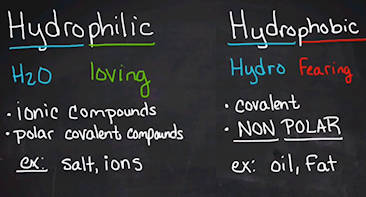 Hydrophilic
H2O loving
· ionic compounds
· polar covalent compounds
ex: salt, ions
Hydrophobic
Hydro Fearing
· covalent
· NON POLAR
ex: oil, Fat